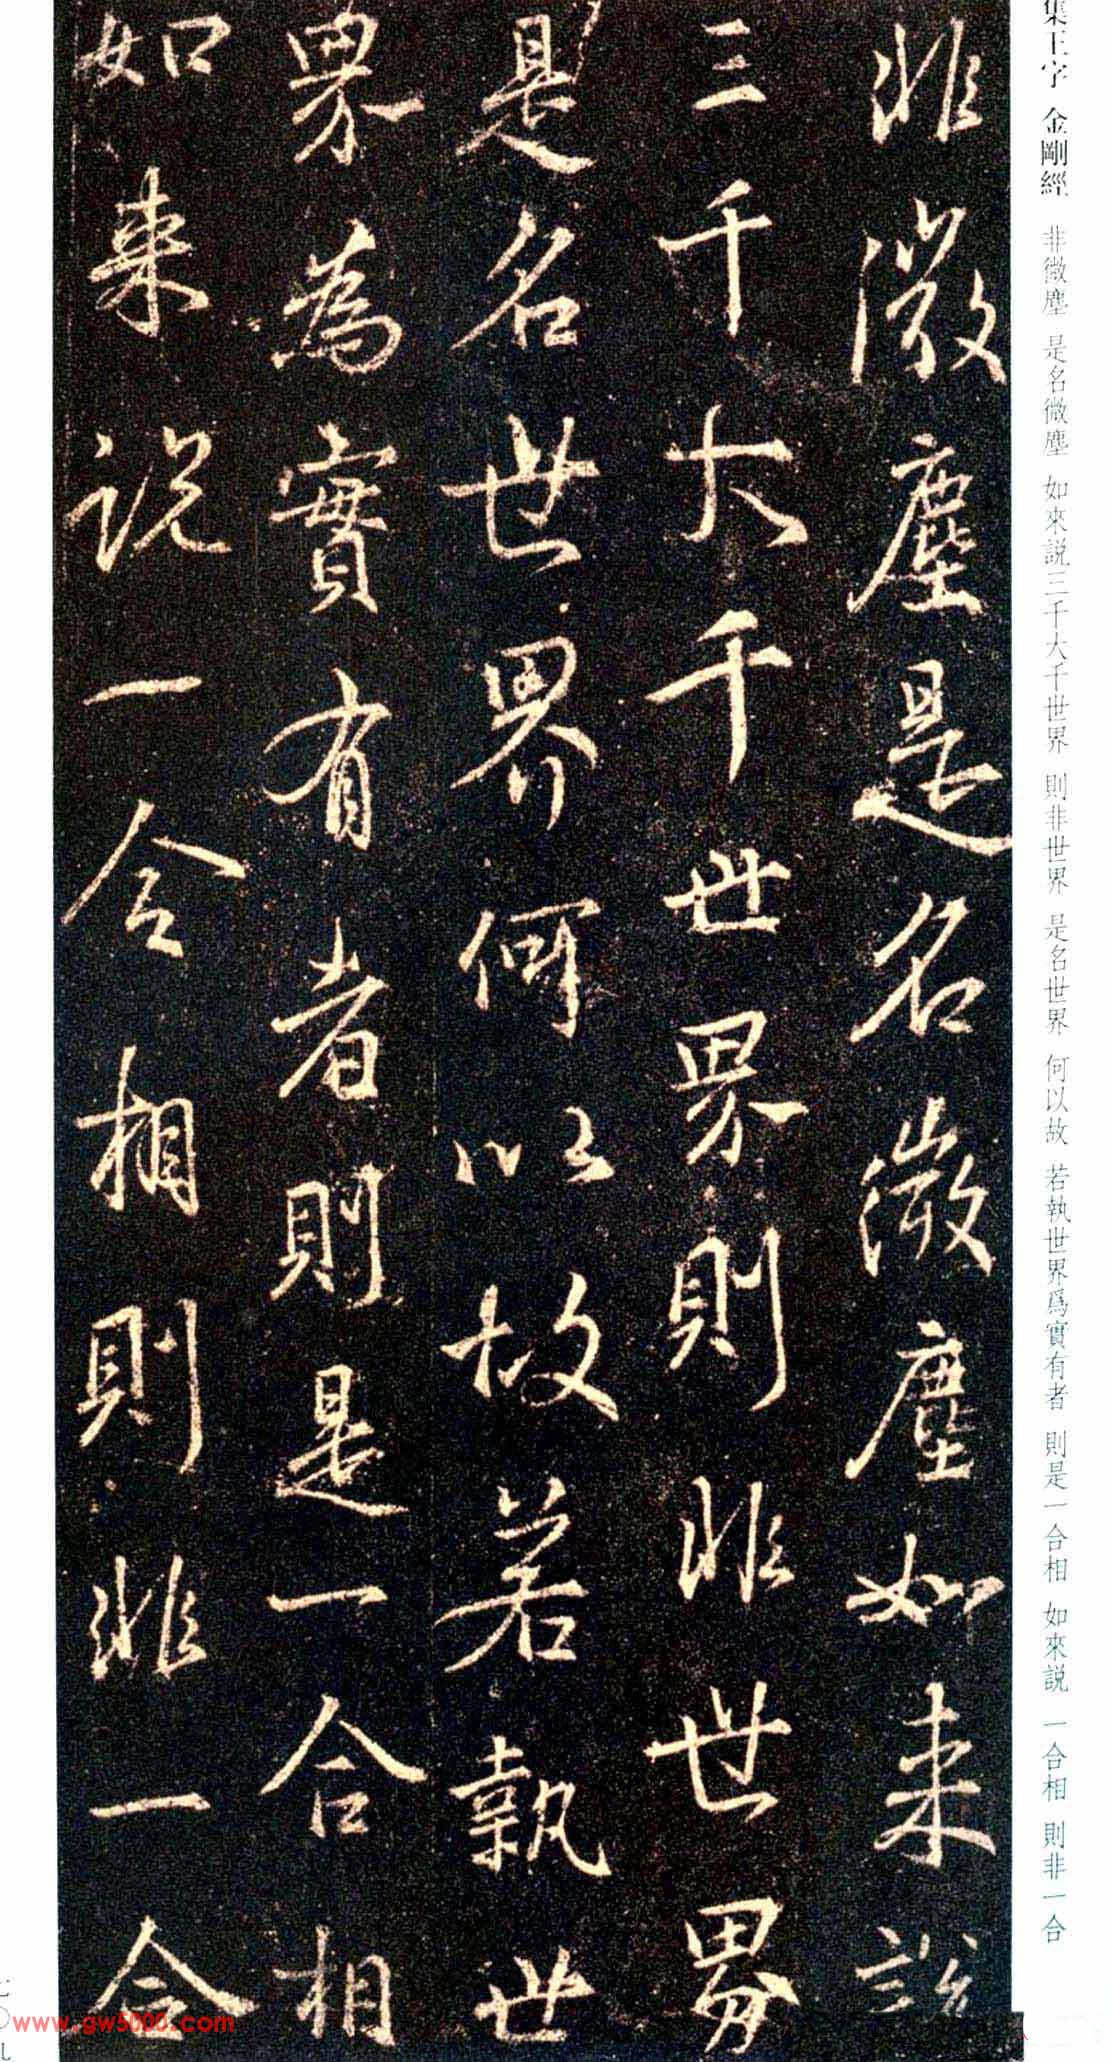 集王字 金剛經 非微塵 是名微塵 如來說三千大千世界 則非世界 是名世界 何以故 若執世界爲實有者 則是一合相 如來說 一合相 則非一合
非微塵是名微塵如來說
三千大千世界則非世界
是名世界何以故若執世
界為實有者則是一合相
如來說一合相則非一合
七〇九
www.gw5000.com